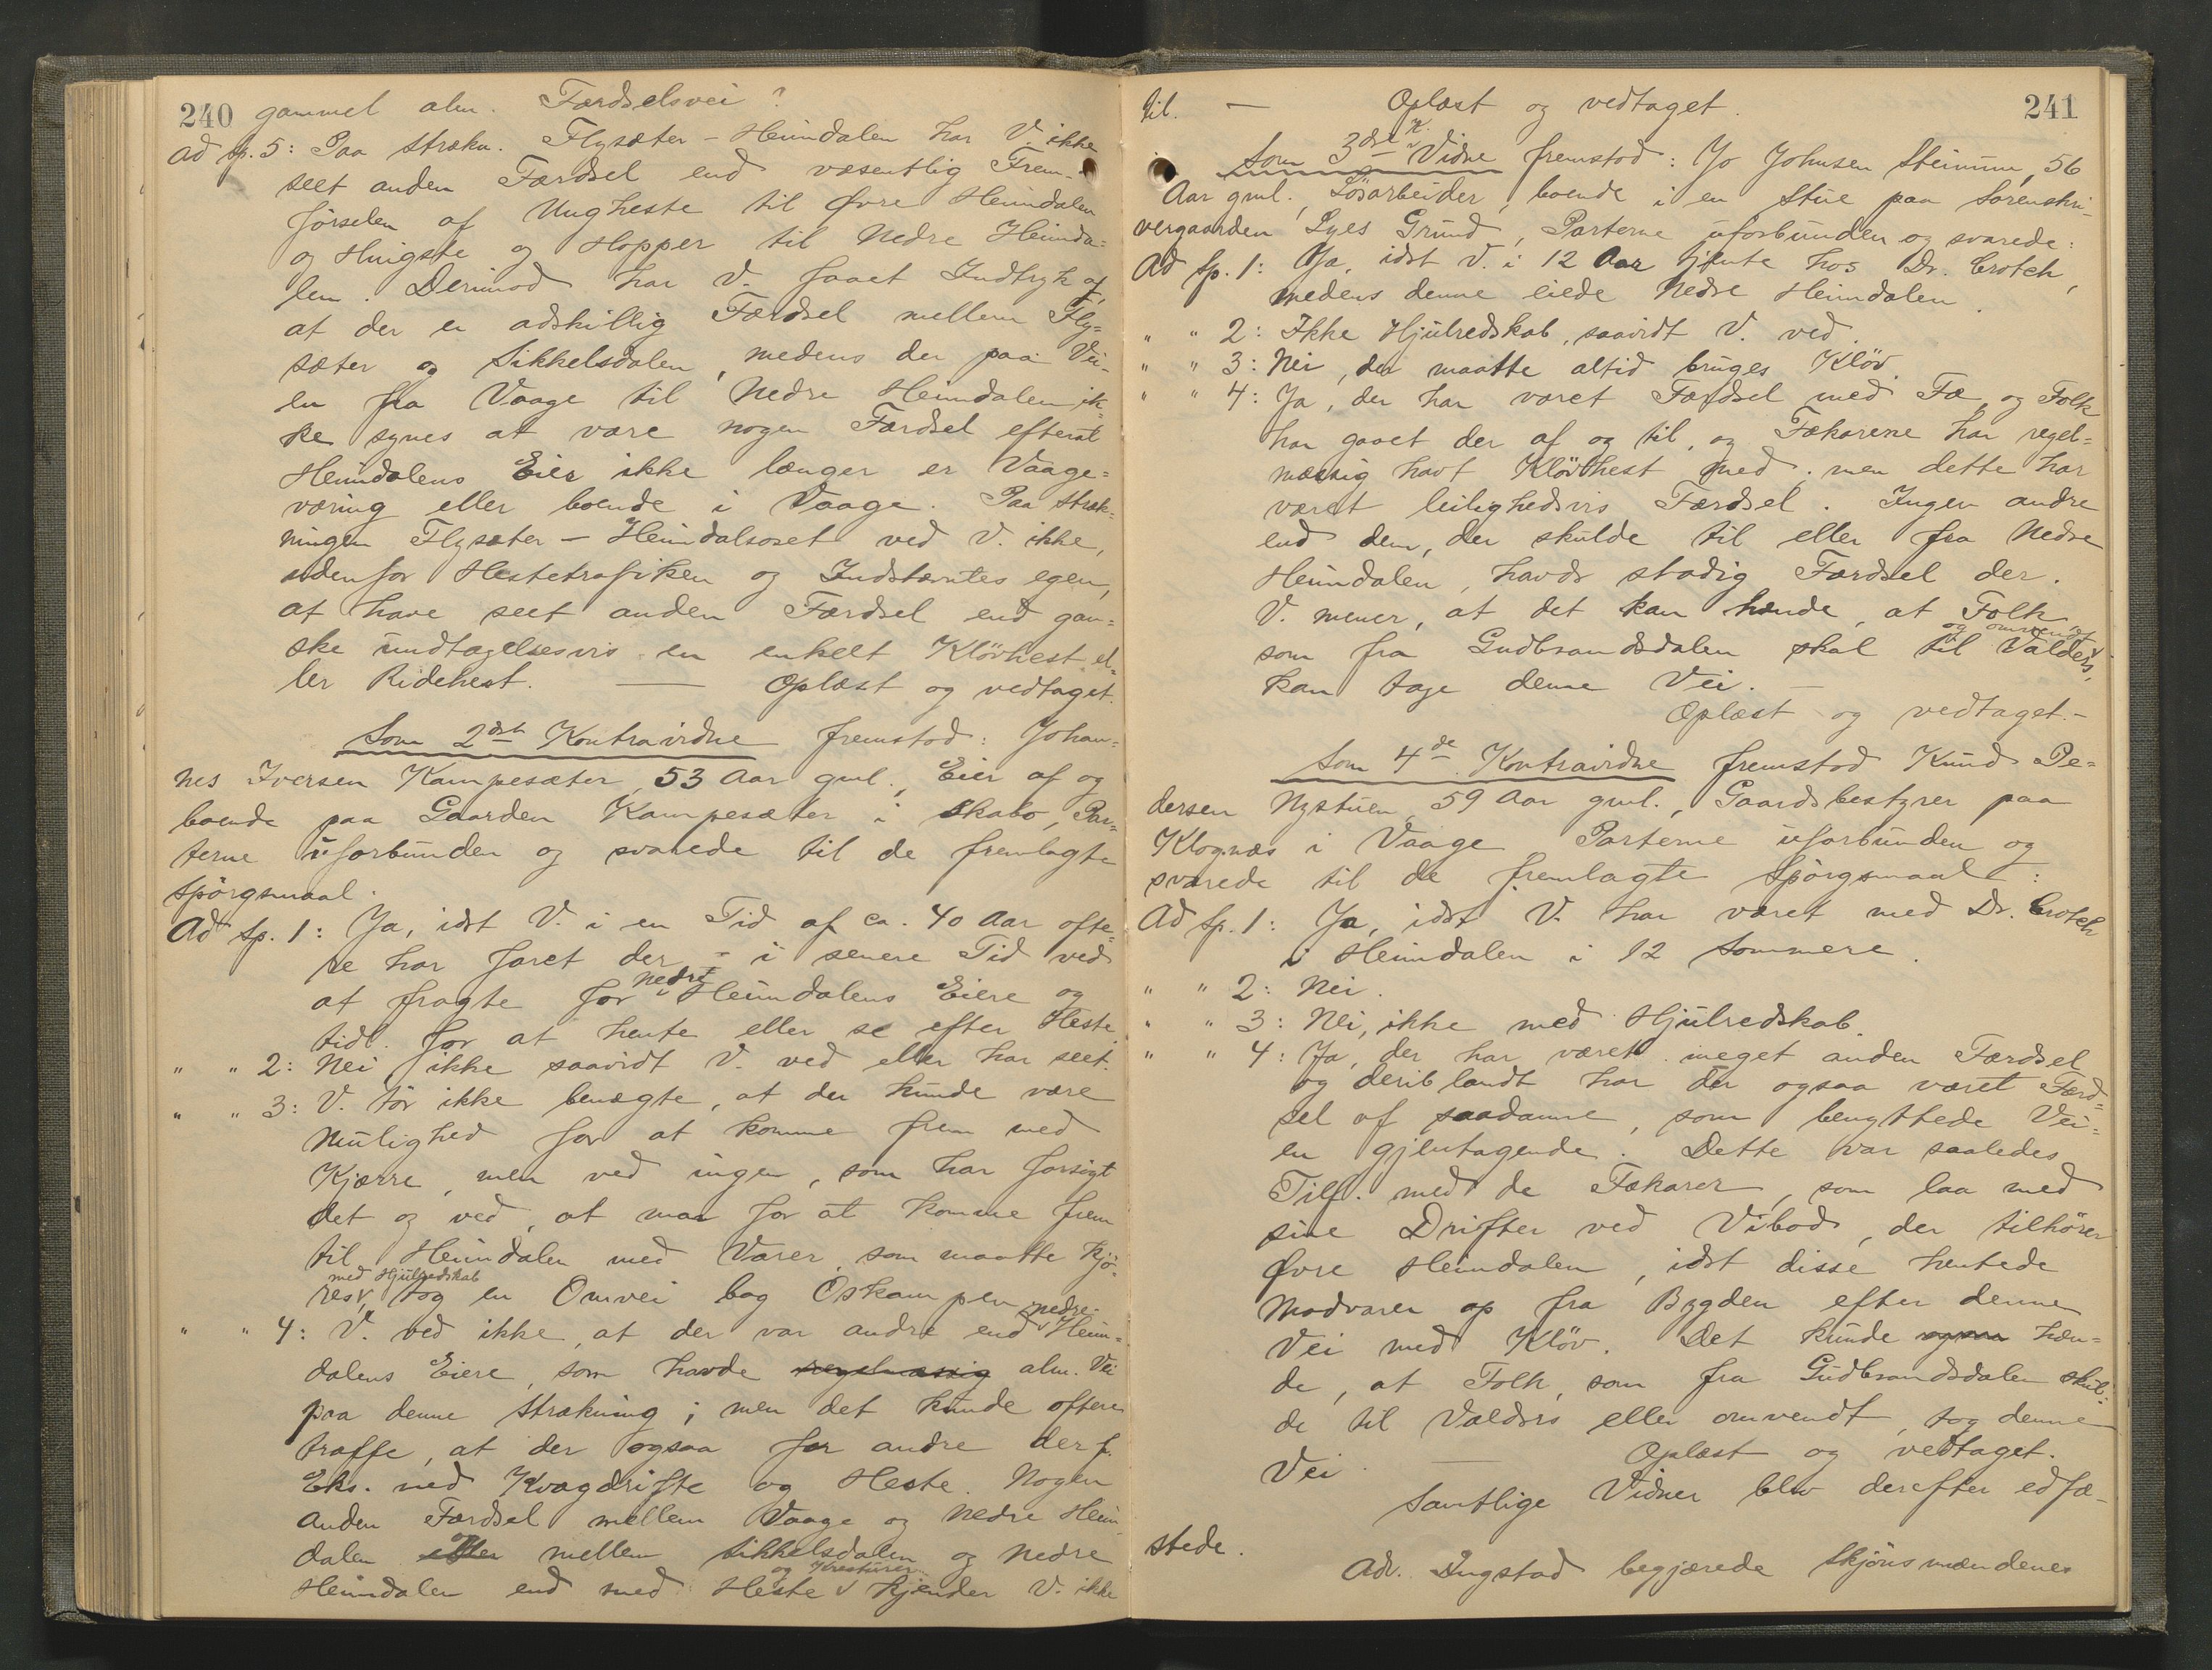 240 gammel alm. Færdselsvei?
Ad Sp. 5: Paa Strækn. Flysæter - Heimdalen har V. ikke
seet anden Færdsel end væsentlig Frem-
førselen af Ungheste til Øvre Heimdalen
og Hingste og Hopper til Nedre Heimda=
len. Derimod har V. faaet Indtryk af,
at der er adskillig Færdsel mellem Fly=
sæter og Sikkelsdalen, medens der paa Vei-
en fra Vaage til Nedre Heimdalen ik=
ke synes at være nogen Færdsel efterat
Heimdalens Eier ikke længer er Vaage=
væring eller boende i Vaage. Paa Stræk=
ningen Flysæter - Heimdalsoset ved V. ikke,
udenfor Hestetrafiken og Indstævntes egen,
at have seet anden Færdsel end gan=
ske undtagelsesvis en enkelt Kløvhest el=
ler Ridehest. — Oplæst og vedtaget.
Som 2det Kontravidne fremstod: Johan=
nes Iversen Kampesæter, 53 Aar gml., Eier af og
boende paa Gaarden Kampesæter i Skabo, Par=
terne uforbunden og svarede til de fremlagte
Spörgsmaal.
Ad Sp. 1: Ja, idet V. i en Tid af ca. 40 Aar ofte=
re har faret der - i senere Tid ved
at fragte for nedre Heimdalens Eiere og
tidl. for at hente eller se efter Heste.
" " 2: Nei ikke saavidt V. ved eller har seet.
" " 3: V. tör ikke benægte, at der kunde være
Mulighed for at komme frem med
Kjærre, men ved ingen, som har forsögt
det og ved, at man for at komme frem
til Heimdalen med Varer, som maatte kjö-
res med Hjulredskab, tog en Omvei bag Oskampen.
" " 4: V. ved ikke, at der var andre end nedre Heim=
dalens Eiere, som havde regelmæssig alm. Vei
paa denne Strækning; men det kunde oftere
træffe, at der ogsaa for andre der f.
Eks. med Kvægdrifte og Heste. Nogen
anden Færdsel mellem Vaage og Nedre Heim-
dalen eller og mellem Sikkelsdalen og Nedre
Heimdalen end med Heste og Kreaturer kjender V. ikke
til. — Oplæst og vedtaget. 241
Som 3die K. Vidne fremstod: Jo Johnsen Steinum, 56
Aar gml., Lösarbeider, boende i en Stue paa Sorenskri-
vergaarden Lyes Grund, Parterne uforbunden og svarede:
Ad Sp. 1: Ja, idet V. i 12 Aar tjente hos Dr. Crotch,
medens denne eiede Nedre Heimdalen.
" " 2: Ikke Hjulredskab, saavidt V. ved.
" " 3: Nei, der maatte altid bruges Klöv.
" " 4: Ja, der har været Færdsel med Fæ, og Folk
har gaaet der af og til, og Fækarene har regel=
mæssig havt Klövhest med; men dette har
været leilighedsvis Færdsel. Ingen andre
end dem, der skulde til eller fra Nedre
Heimdalen, havde stadig Færdsel der.
V. mener, at det kan hænde, at Folk,
som fra Gudbrandsdalen skal til Valders og omvendt,
kan tage denne Vei. —
Oplæst og vedtaget. -
Som 4de Kontravidne fremstod Knud Pe=
dersen Nystuen, 59 Aar gml., Gaardsbestyrer paa
Klognæs i Vaage Parterne uforbunden og
svarede til de fremlagte Spörgsmaal:
Ad Sp. 1: Ja, idet V. har været med Dr. Crotch
i Heimdalen i 12 Sommere.
" " 2: Nei.
" " 3: Nei, ikke med Hjulredskab.
" " 4: Ja, der har været meget anden Færdsel
og deriblandt har der ogsaa været Færd=
sel af saadanne, som benyttede Vei=
en gjentagende. Dette var saaledes
Tilf. med de Fækarer, som laa med
sine Drifter ved Vibod, der tilhörer
Øvre Heimdalen, idet disse hentede
Madvarer op fra Bygden efter denne
Vei med Klöv. Det kunde ogsaa hæn=
de, at Folk, som fra Gudbrandsdalen skul-
de til Valders eller omvendt, tog denne
Vei. — Oplæst og vedtaget.
Samtlige Vidner blev derefter edfæ-
stede.
Adv. Dugstad begjærede Skjönsmændenes